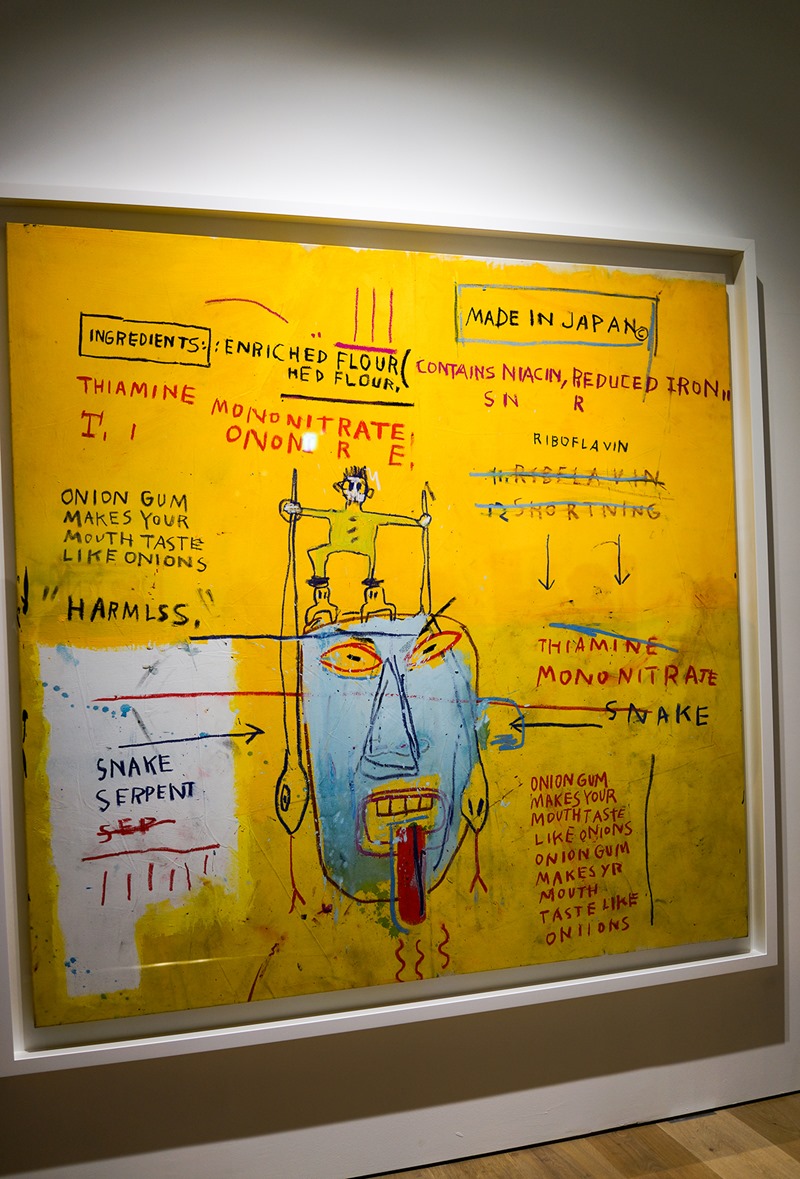 MADE IN JAPAN©
INGREDIENTS: : ENRICHED FLOUR(
HED FLOUR,
CONTAINS NIACIN, REDUCED IRON,,
S N R
THIAMINE MONONITRATE,
I, I ONON R E,
RIBOFLAVIN
11. RIBELAVIN
12 SHORTNING
ONION GUM
MAKES YOUR
MOUTH TASTE
LIKE ONIONS
"HARMLSS,"
THIAMINE
MONONITRATE
SNAKE
SNAKE
SERPENT
SEP
ONION GUM
MAKES YOUR
MOUTH TASTE
LIKE ONIONS
ONION GUM
MAKES YR
MOUTH
TASTE LIKE
ONIIONS